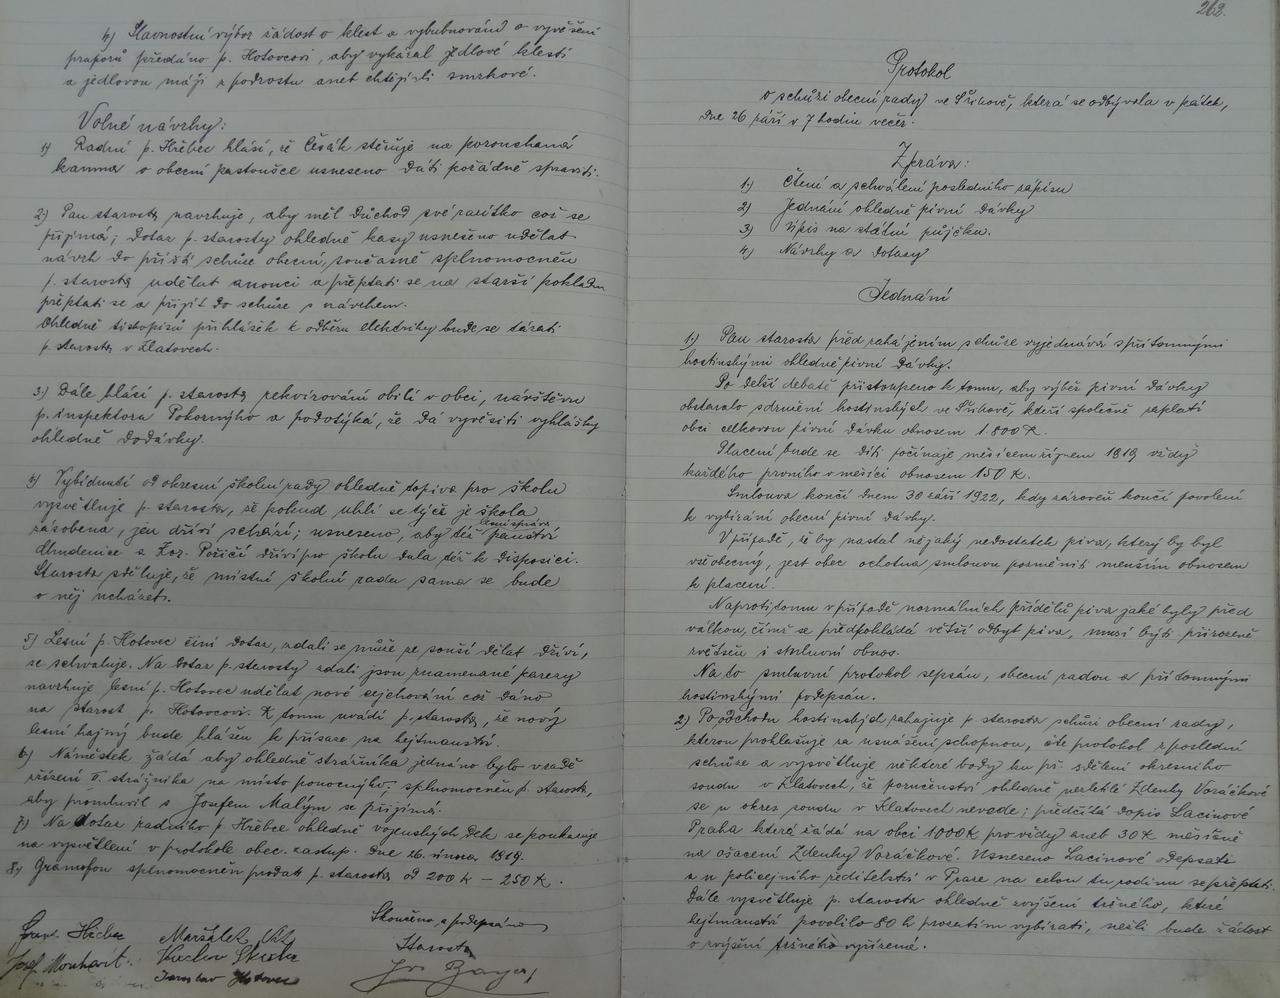 4) Slavnostní výbor žádost o klest a vybubnování o vyvěšení
praporů předáno p. Hotovcovi, aby vykázal jedlové klestí
a jedlovou máji z podrostu anet chtějí-li smrkové.
Volné návrhy:
1) Radní p. Hřebec hlásí, že Češák stěžuje na porouchaná
kamna v obecní pastoušce usneseno dáti pořádně spraviti.
2) Pan starosta navrhuje, aby měl důchod své razítko což se
přijímá; dotaz p. starosty ohledně kasy usnešeno udělat
návrh do příští schůze obecní, současně splnomocněn
p. starosta udělat anonci a přeptati se na starší pokladnu
přeptati se a přijít do schůze s návrhem.
Ohledně tiskopisů přihlášek k odběru elektriky bude se tázati
p. starosta v Klatovech.
3) Dále hlásí p. starosta rekvirování obilí v obci, návštěvu
p. inspektora Pokorného a podotýká, že dá vyvěsiti vyhlášky
ohledně dodávky.
4) Vybídnutí od okresní školní rady ohledně topiva pro školu
vysvětluje p. starosta, že pokud uhlí se týče je škola
zásobena, jen dříví schází; usneseno, aby též panství
lesní správa
Chudenice a Poříčí dříví pro školu dala též k disposici.
Starosta sděluje, že místní školní rada sama se bude
o něj ucházet.
5) Lesní p. Hotovec činí dotaz, zdali se může ze souší dělat dříví,
se schvaluje. Na dotaz p. starosty zdali jsou znamenané
navrhuje lesní p. Hotovec udělat nové což dáno
na starost p. Hotovcovi. K tomu uvádí p. starosta, že nový
lesní hajný bude hlášen k přísaze na hejtmanství.
6) Náměstek žádá aby ohledně strážníka jednáno bylo v radě
zřízení II. strážníka na místo ponocného, splnomocněn p. starosta,
aby promluvil s Josefem Malým se přijímá.
7) Na dotaz radního p. Hřebce ohledně vojenských dek se poukazuje
na vysvětlení v protokole obec. zastup. dne 26. února 1919.
8) Gramofon splnomocněn prodat p. starosta od 200 K – 250 K.
Skončeno a podepsáno
Starosta
262.
Protokol
o schůzi obecní rady ve Švihově, která se odbývala v pátek,
dne 26 září v 7 hodin večer.
Zpráva:
1) Čtení a schválení posledního zápisu
2) Jednání ohledně pivní dávky
3) Úpis na státní půjčku.
4) Návrhy a dotazy
Jednání
1) Pan starosta před zahájením schůze vyjednává s přítomnými
hostinskými ohledně pivní dávky.
Po delší debatě přistoupeno k tomu, aby výběr pivní dávky
obstaralo sdružení hostinských ve Švihově, kteří společně zaplatí
obci celkovou pivní dávku obnosem 1.800 K.
Placení bude se díti počínaje měsícem říjnem 1919 vždy
každého prvního v měsíci obnosem 150 K.
Smlouva končí dnem 30 září 1922, kdy zároveň končí povolení
k vybírání obecní pivní dávky.
V případě, že by nastal nějaký nedostatek piva, který by byl
všeobecný, jest obec ochotna smlouvu pozměniti menším obnosem
k placení.
Naproti tomu v případě normálních přídělů piva jaké byly před
válkou, čímž se předpokládá větší odbyt piva, musí býti přirozeně
zvětšen i smluvní obnos.
Na to smluvní protokol sepsán, obecní radou a přítomnými
hostinskými podepsán.
2) Po odchodu hostinských zahajuje p. starosta schůzi obecní rady,
kterou prohlašuje za usnášení schopnou, čte protokol z poslední
schůze a vysvětluje některé body ku př. sdělení okresního
soudu v Klatovech, že poručenství ohledně nezletilé Zdenky Voráčkové
se u okres. soudu v Klatovech nevede; předčítá dopis Lacinové
Praha která žádá na obci 1000 K pro vždy aneb 30 K měsíčně
na ošacení Zdenky Voráčkové. Usneseno Lacinové odepsati
a u policejního ředitelství v Praze na celou tu rodinu se přeptati.
Dále vysvětluje p. starosta ohledně zvýšení tržného, které
hejtmanství povolilo 80 h prozatím vybírati, nežli bude žádost
o zvýšení tržného vyřízena.